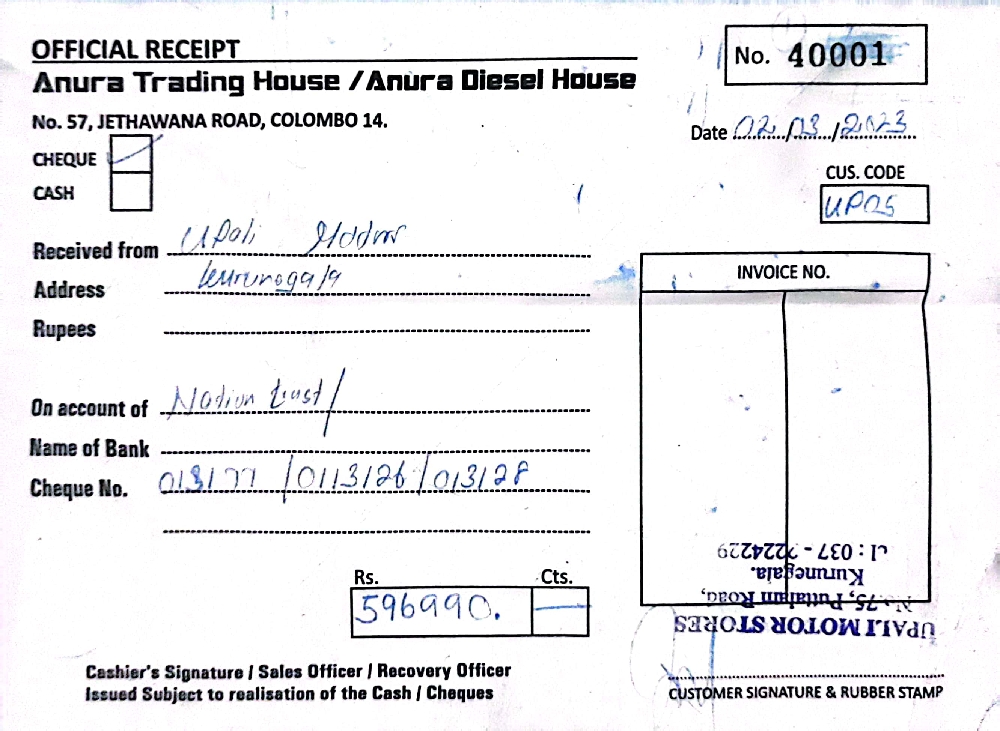 OFFICIAL RECEIPT
No. 40001
Anura Trading House / Anura Diesel House
No. 57, JETHAWANA ROAD, COLOMBO 14.
Date 02/03/2023
CHEQUE
CUS. CODE
CASH
UP05
Received from Upali
Address Kurunegala
INVOICE NO.
Rupees
On account of Nation trust/
Name of Bank
Cheque No. 013177 /0113126/013128
Rs. Cts.
596990. —
UPALI MOTOR STORES
No. 75, Puttalam Road,
Kurunegala.
: 037 - 2224229
Cashier's Signature / Sales Officer / Recovery Officer
Issued Subject to realisation of the Cash / Cheques
CUSTOMER SIGNATURE & RUBBER STAMP